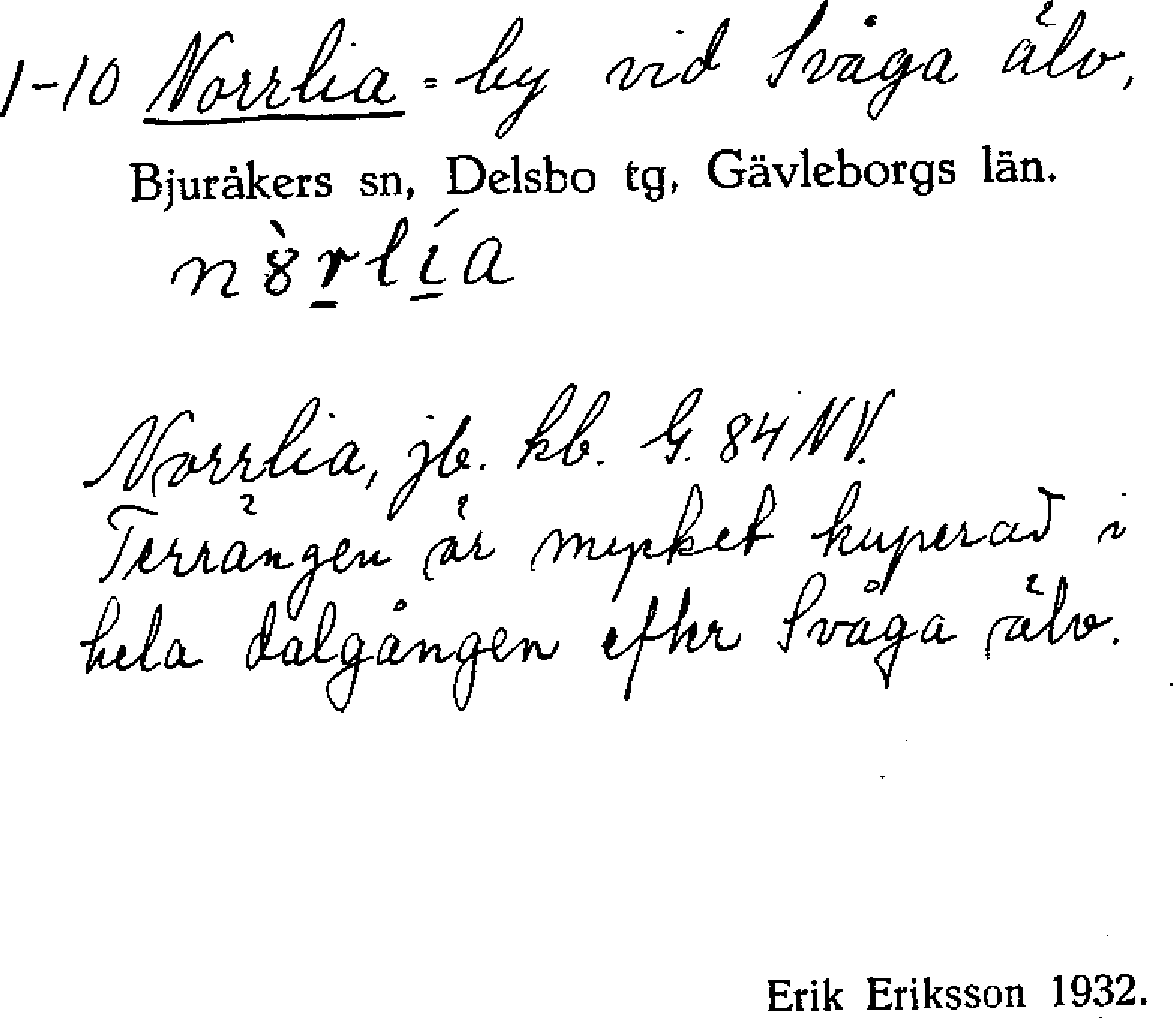 1-10 Norrlia = by vid Svåga älv,
Bjuråkers sn, Delsbo tg, Gävleborgs län.
n8̀rlía
Norrlia, jb. kb. G. 84 NV.
Terrängen är mycket kuperad i
hela dalgången efter Svåga älv.
Erik Eriksson 1932.